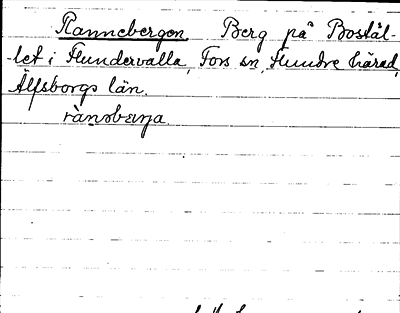 Rannebergen Berg på Bostäl-
-let i Flundervalla, Fors sn, Flundre härad,
Älfsborgs län.
rànəbærja